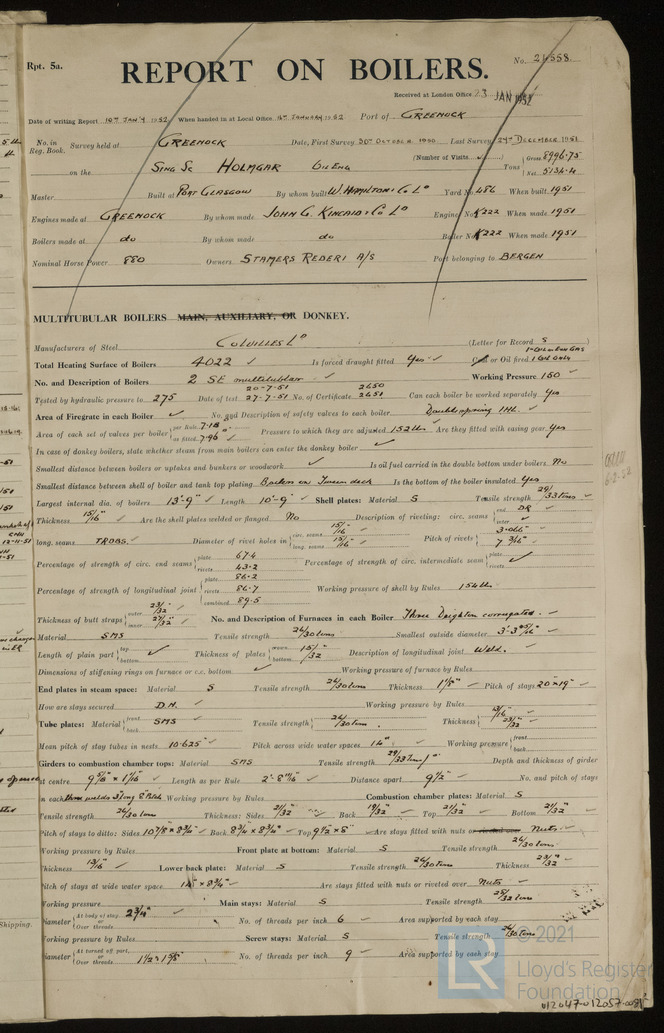 Rpt. 5a.
No. 21558
REPORT ON BOILERS.
Received at London Office 23 JAN 1952
Date of writing Report 10TH JANY 1952 When handed in at Local Office 16TH JANUARY 1952 Port of GREENOCK
No. in Reg. Book. Survey held at GREENOCK Date, First Survey 30TH OCTOBER 1950 Last Survey 24TH DECEMBER 1951
(Number of Visits )
on the SING SC HOLMGAR OIL ENG Tons { Gross 8996.75 Net 5134.4
Master Built at PORT GLASGOW By whom built W. HAMILTON & CO LD Yard No. 486 When built 1951
Engines made at GREENOCK By whom made JOHN G. KINCAID & CO LD Engine No. K222 When made 1951
Boilers made at do By whom made do Boiler No. K222 When made 1951
Nominal Horse Power 880 Owners STAMERS REDERI A/S Port belonging to BERGEN
MULTITUBULAR BOILERS MAIN, AUXILIARY, OR DONKEY.
Manufacturers of Steel COLVILLES LD (Letter for Record S )
Total Heating Surface of Boilers 4022 ✓ Is forced draught fitted Yes ✓ Coal or Oil fired 1 Oil only
1-Oil or Exh GAS
No. and Description of Boilers 2 SE multitubular ✓ Working Pressure 150 ✓
Tested by hydraulic pressure to 275 Date of test 20-7-51 27-7-51 No. of Certificate 2650 2651 Can each boiler be worked separately Yes
Area of Firegrate in each Boiler ✓ No. and Description of safety valves to each boiler Double spring IHL. ✓
Area of each set of valves per boiler { per Rule 7.18 as fitted 7.96 Pressure to which they are adjusted 152 lb Are they fitted with easing gear Yes
In case of donkey boilers, state whether steam from main boilers can enter the donkey boiler ✓
Smallest distance between boilers or uptakes and bunkers or woodwork ✓ Is oil fuel carried in the double bottom under boilers No
Smallest distance between shell of boiler and tank top plating Boilers in Tween deck Is the bottom of the boiler insulated Yes
Largest internal dia. of boilers 13'-9" ✓ Length 10'-9" ✓ Shell plates: Material S Tensile strength 29/33 tons ✓
Thickness 15/16" ✓ Are the shell plates welded or flanged No Description of riveting: circ. seams { end DR inter ✓
long. seams TRDBS. ✓ Diameter of rivet holes in { circ. seams 15/16" long. seams 15/16" ✓ Pitch of rivets { 3.066" 7 3/16" ✓
Percentage of strength of circ. end seams { plate 67.4 rivets 43.2 Percentage of strength of circ. intermediate seam { plate rivets ✓
Percentage of strength of longitudinal joint { plate 86.2 rivets 86.7 combined 89.5 Working pressure of shell by Rules 154 lb.
Thickness of butt straps { outer 23/32" inner 27/32" ✓ No. and Description of Furnaces in each Boiler Three Deighton corrugated. ✓
Material SMS Tensile strength 26/30 tons Smallest outside diameter 3'-3 25/32" ✓
Length of plain part { top bottom ✓ Thickness of plates { crown bottom 15/32" Description of longitudinal joint Weld. ✓
Dimensions of stiffening rings on furnace or c.c. bottom ✓ Working pressure of furnace by Rules
End plates in steam space: Material S Tensile strength 26/30 tons Thickness 1 1/8" ✓ Pitch of stays 20"x19" ✓
How are stays secured D.N. ✓ Working pressure by Rules
Tube plates: Material { front back SMS Tensile strength { 26/30 tons Thickness { 13/16" 23/32" ✓
Mean pitch of stay tubes in nests 10.625" ✓ Pitch across wide water spaces 14" ✓ Working pressure { front back
Girders to combustion chamber tops: Material SMS Tensile strength 29/33 tons/" ✓ Depth and thickness of girder
at centre Length as per Rule Distance apart 9 1/2" ✓ No. and pitch of stays
in each three welds 3" long 8" Pitch Working pressure by Rules Combustion chamber plates: Material S
Tensile strength 26/30 tons Thickness: Sides 21/32" Back 19/32" ✓ Top 21/32" ✓ Bottom 21/32" ✓
Pitch of stays to ditto: Sides 10 7/8" x 8 3/4" ✓ Back 8 3/4" x 8 3/4" ✓ Top 9 1/2" x 8" ✓ Are stays fitted with nuts or riveted over Nuts. ✓
Working pressure by Rules Front plate at bottom: Material S Tensile strength 26/30 tons
Thickness 13/16" ✓ Lower back plate: Material S Tensile strength 26/30 tons Thickness 23/32" ✓
Pitch of stays at wide water space 14" x 8 3/4" ✓ Are stays fitted with nuts or riveted over Nuts ✓
Working pressure Main stays: Material S Tensile strength 28/32 tons
Diameter { At body of stay, or Over threads 2 3/4" ✓ No. of threads per inch 6 ✓ Area supported by each stay
Working pressure by Rules Screw stays: Material S Tensile strength 26/30 tons
Diameter { At turned off part, or Over threads No. of threads per inch 9 ✓ Area supported by each stay
© 2021
LR
Lloyd's Register
Foundation
012047-012057-0081
Shipping.